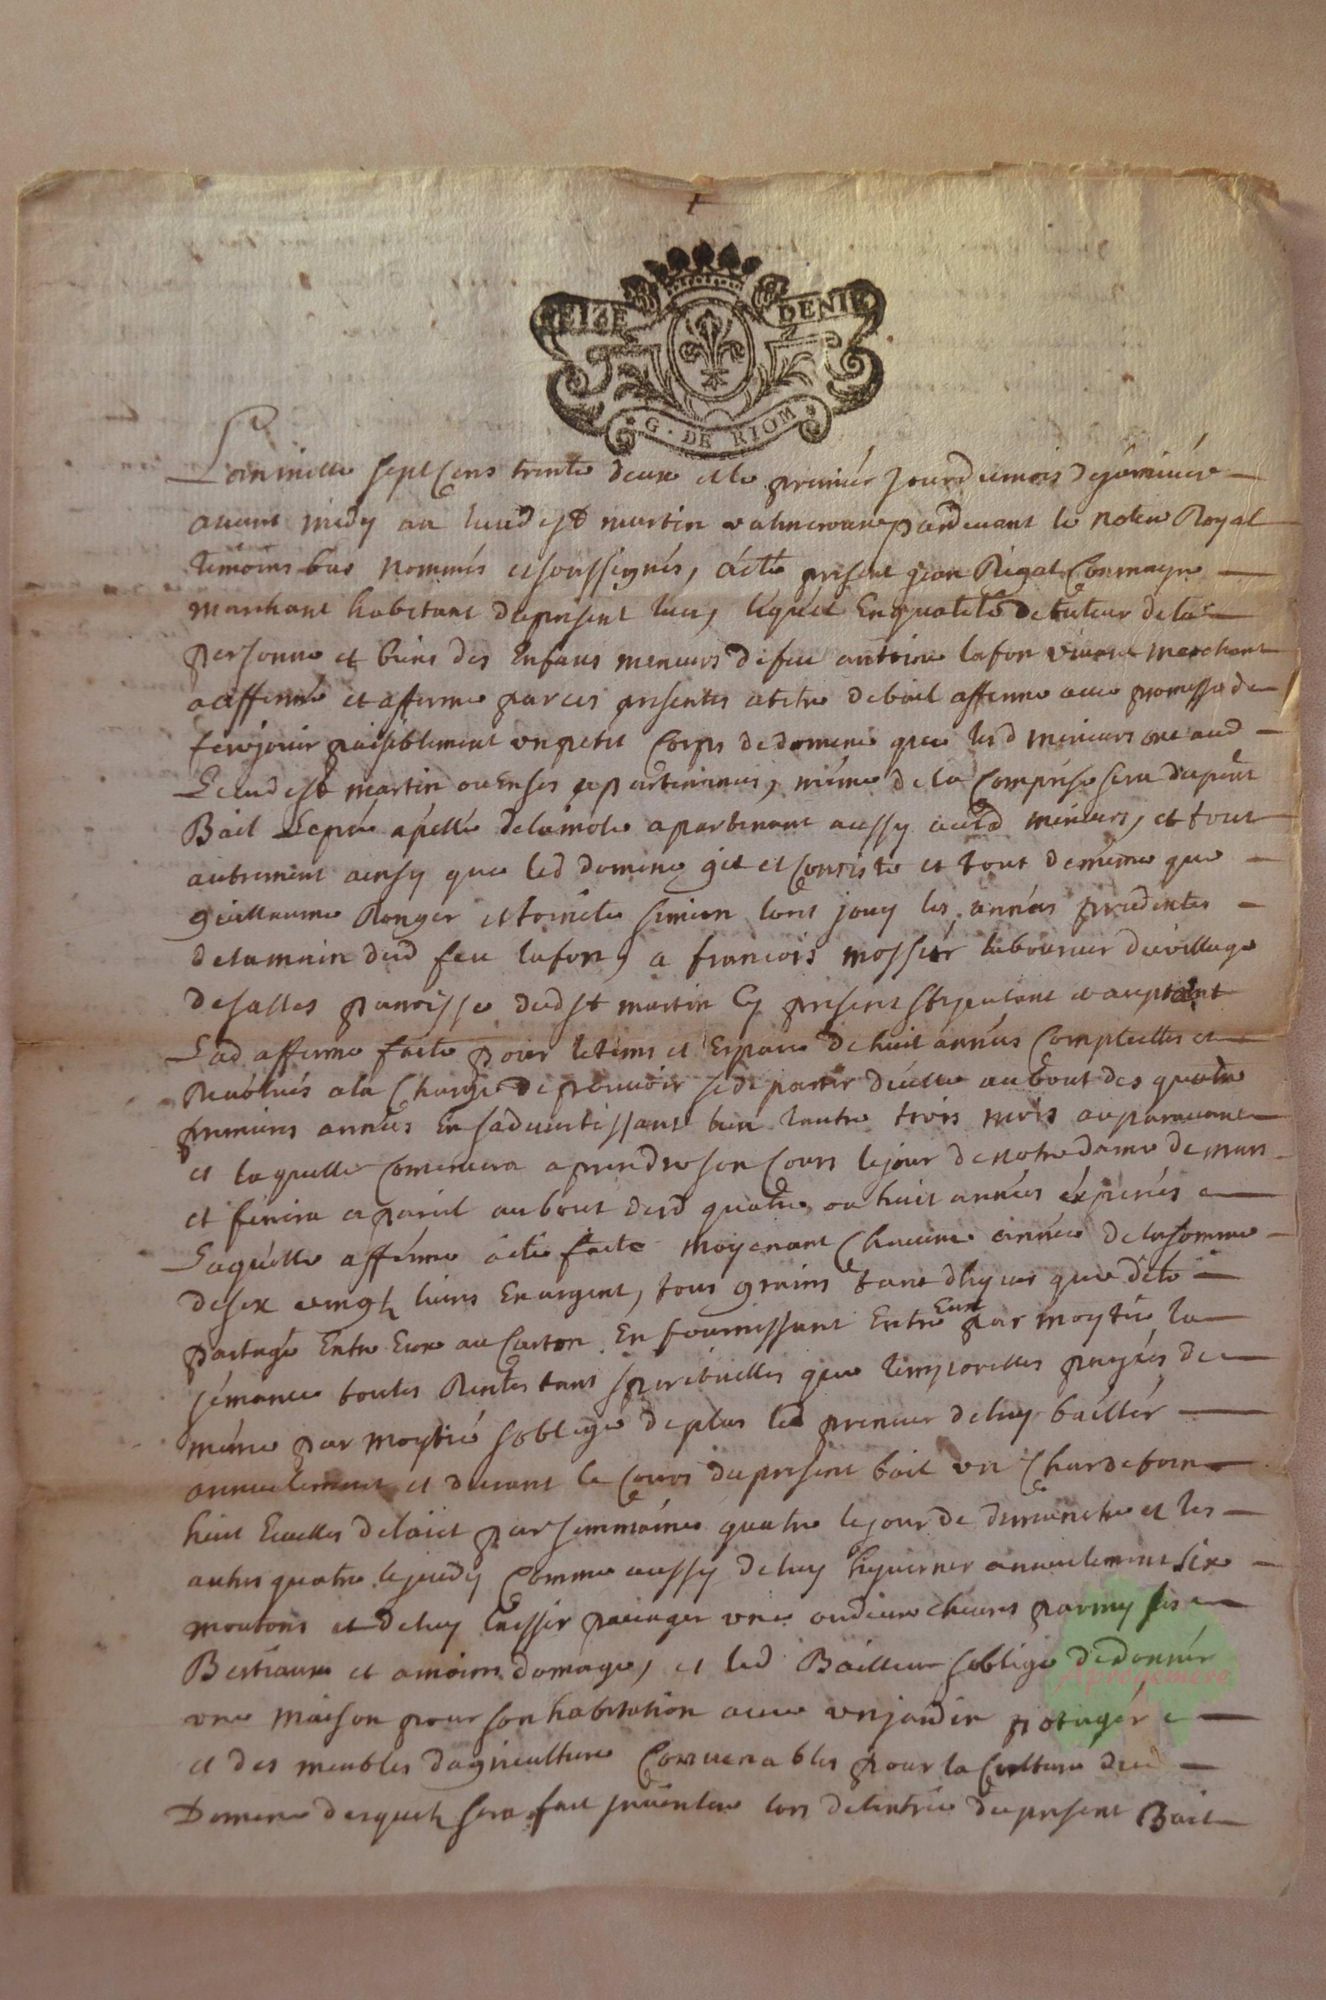 SEIZE DENIE
G. DE RIOM
Lan mille sept Cens trente deux et le premier Jour du mois de jenvier
avant midy au lieu de st martin valmeroux pardevant le notere Royal
temoins bas nommés et soussignés, a été present jean Rigal Conmayre
marchant habitant du present lieu, lequel En qualité de tuteur de la
personne et biens des Enfans mineurs de feu antoine lafon vivant marchant
a afferme et afferme par ces presentes a titre de bail afferme avec promesse de
fere jouir paisiblement un petit Corps de domene que lesd mineurs ont aud
Lieu de st martin ou En ses apartenances, méme de la Comprise sera du pnt
Bail Le pré apellé de lamole apartenant aussy ausd mineurs, et tout
autrement ainsy que led domene git et Consiste et tout de méme que
guillaume Ronger et toinete simion lont jouy les années precedentes
de la main dud feu lafon, a francois mossier laboureur du village
de salles paroisse dud st martin Cy present stipulant et acceptant
Lad afferme faite pour le tems et Espace de huit années Complettes et
Revolues a la Charge de pouvoir se departir d'icelle au bout des quatre
premieres années En sadvertissant lun lautre trois mois auparavant
et laquelle Commencera a prendre son Cours le jour de notre dame de mars
et finira a pareil au bout desd quatre ou huit années éxpirées
Laquelle afferme a été faite moyenant Chacune année de la somme
de six vingt livres En argent, tous grains tant d'hyver que d'été
partagé Entre Eux au Carton En fournissant Entre Eux par moytié la
semance toutes Rentes tant spirituelles que temporelles payées de
méme par moytié soblige de plus led prenuer de luy bailler
annuelement et durant le Cours du present bail un Char de foin
huit Ecuelles de laict par semmaine quatre le jour de dimenche et les
autres quatre le jeudy Comme aussy de luy hyverner annuelement six
moutons et de luy laisser pacager une ou deux chevres parmy ses
Bestiaux et a moins domage, et led Bailleur soblige de donner
une maison pour son habitation avec un jardin potager
et des meubles dagriculture Convenables pour la Culture dud
Domene desquels sera fait inventere lors de lentrée du present Bail
Aprogemere